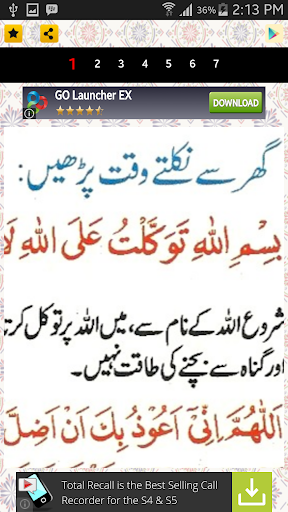 36% 2:13 PM
1 2 3 4 5 6 7
GO Launcher EX
DOWNLOAD
گھر سے نکلتے وقت پڑھیں:
بِسْمِ اللهِ تَوَكَّلْتُ عَلَى اللهِ لَا
شروع اللہ کے نام سے، میں اللہ پر توکل کرتا
اور گناہ سے بچنے کی طاقت نہیں۔
اَللّٰهُمَّ اِنِّیْ اَعُوْذُ بِكَ اَنْ اَضِلَّ
Total Recall is the Best Selling Call
Recorder for the S4 & S5